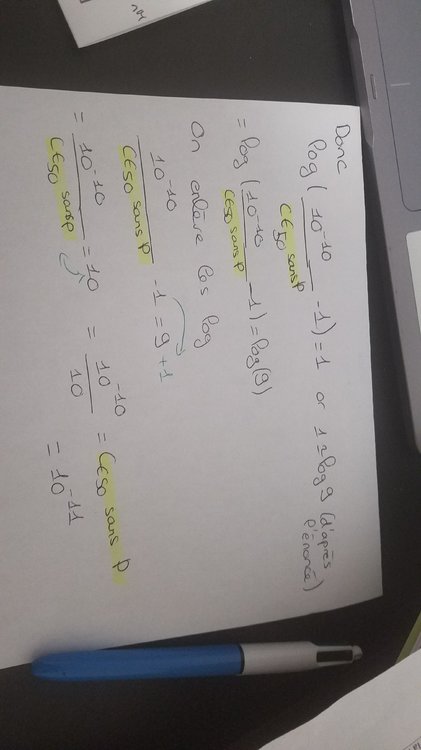 Donc
log ( 10^-10 / CE50 sans P - 1) = 1 or 1 = log 9 (d'après l'énoncé)
= log ( 10^-10 / CE50 sans P - 1) = log(9)
On enlève les log
10^-10 / CE50 sans P - 1 = 9 +1
= 10^-10 / CE50 sans P = 10 = 10^-10 / 10 = CE50 sans P
= 10^-11